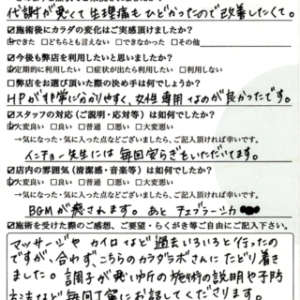 代謝が悪くて生理痛もひどかったので改善したくて。
☑施術後にカラダの変化はご実感頂けましたか?
☑できた □どちらとも言えない □できなかった □その他
☑今後も弊店を利用したいと思いましたか?
☑定期的に利用したい □症状が出たら利用したい □利用しない
□弊店をお選び頂いた際の決め手は何でしょうか?
HPが非常に分かりやすく、女性専用なのが良かったです。
☑スタッフの対応(ご説明・応対等)は如何でしたか?
☑大変良い □良い □普通 □悪い □大変悪い
→気になった・気に入った点などございましたら、ご記入頂ければ幸いです。
先生には毎回安らぎをもいただいてます。
☑店内の雰囲気(清潔感・音楽等)は如何でしたか?
☑大変良い □良い □普通 □悪い □大変悪い
→気になった・気に入った点などございましたら、ご記入頂ければ幸いです。
BGMが癒されます。あと チェブラーシカ
☑施術を受けた際のご感想、ご要望・らくがき等ご自由にご記入下さい。
マッサージや カイロなど過去いろいろと行ったの
ですが、合わず、こちらのカラダラボさんに たどり着き
ました。調子が悪い所の施術の説明や予防
方法など毎回丁寧にお話してくださります。